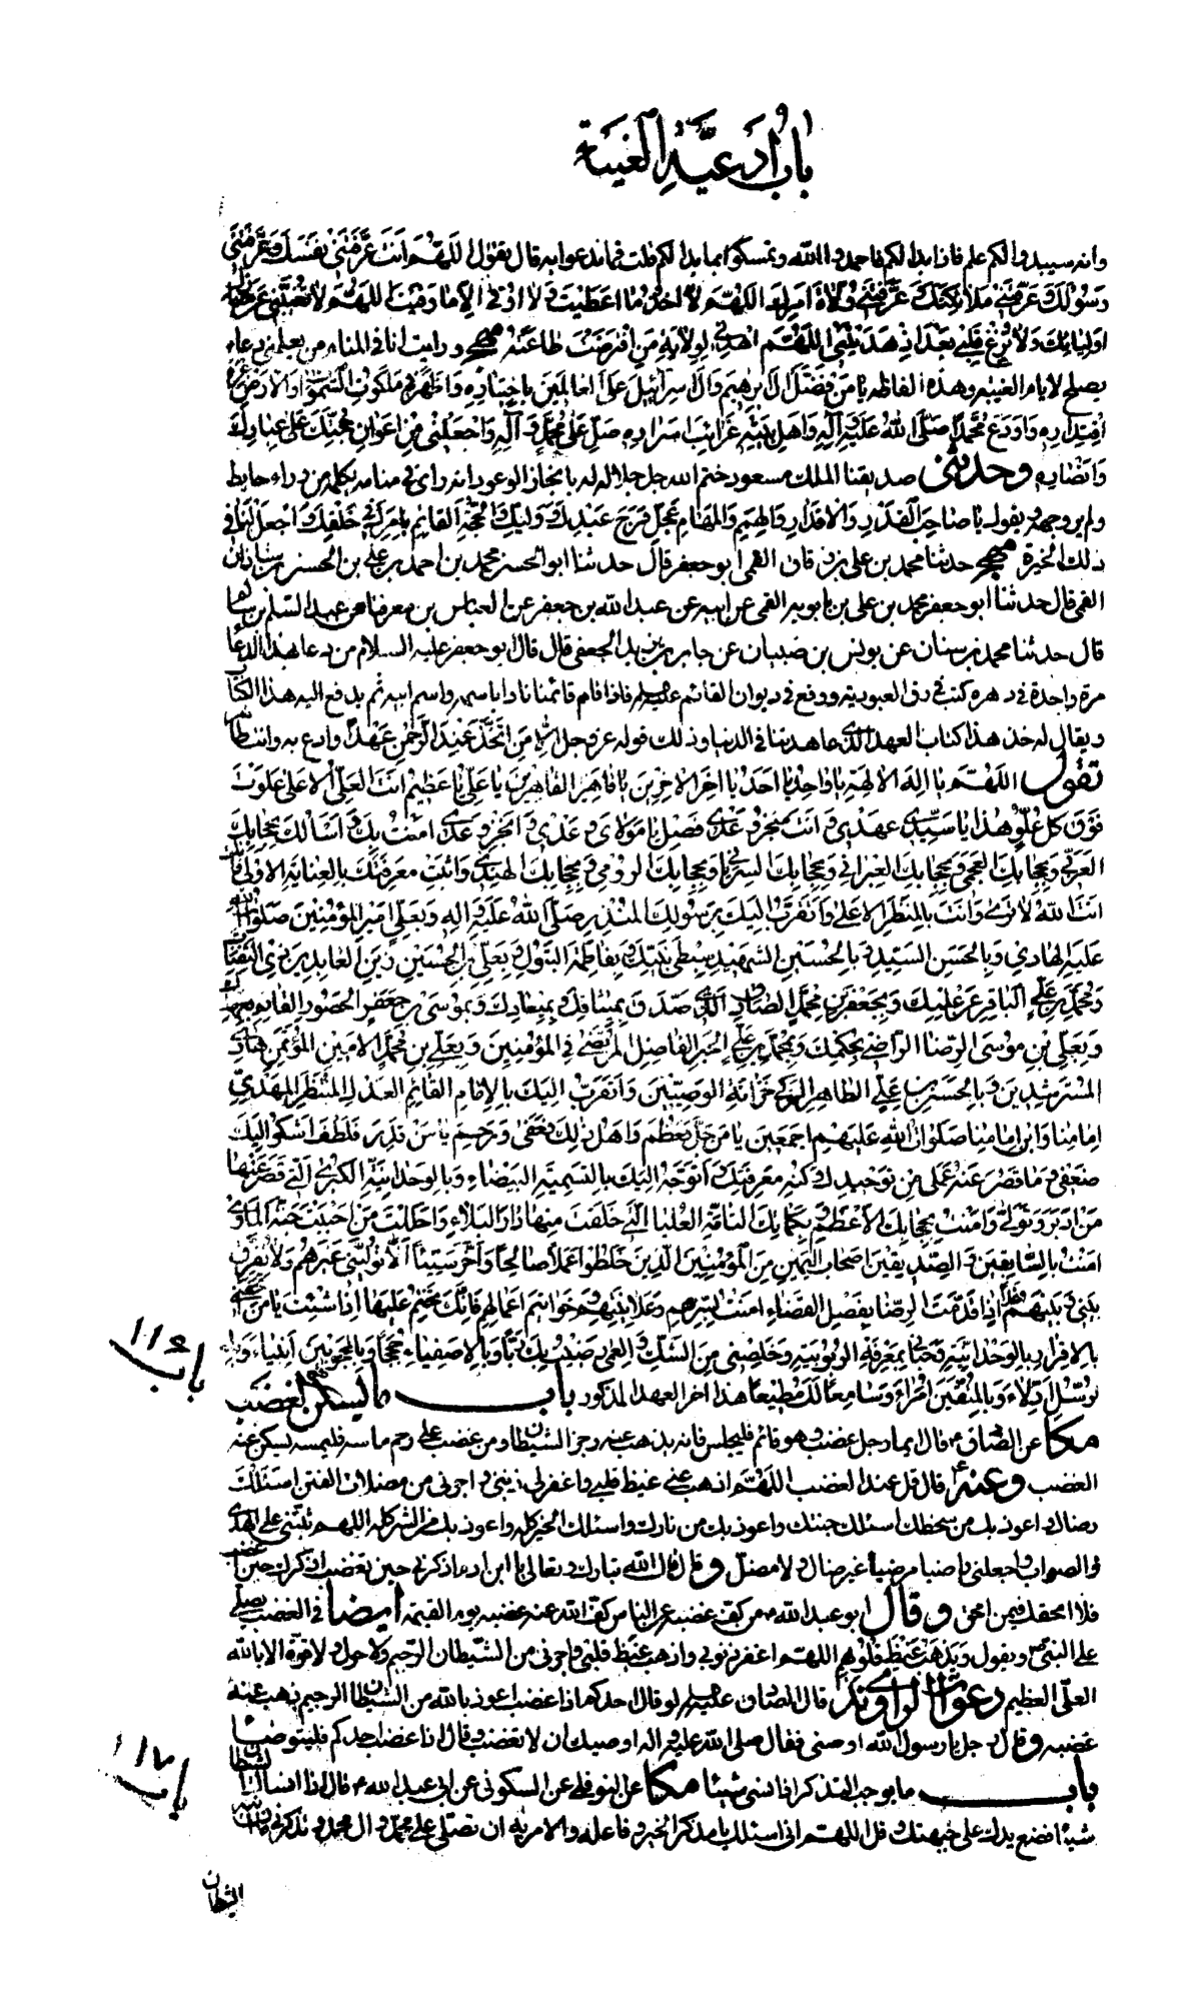 باب أدعية الغيبة
وانه سيبدو لكم علم فاذا بدا لكم فاحمدوا الله وتمسكوا بما بدا لكم قلت فما ندعوا به قال يقول اللهم انت عرفتني نفسك وعرفتني
رسولك وعرفتني ملائكتك وعرفتني ولاة امرك اللهم لا اخذ الا ما اعطيت ولا اوقى الا ما وقيت اللهم لا تغيبني عن منازل
اوليائك ولا تزغ قلبي بعد اذ هديتني اللهم اهدني لولاية من افترضت طاعته مهج ورايت انا في المنام من يعلمني دعاء
يصلح لايام الغيبة وهذه الفاظه يا من فضل ال ابرهيم وال اسرائيل على العالمين باختياره واظهر في ملكوت السموات والارض عزة
اقتداره واودع محمدا صلى الله عليه وآله واهل بيته غرائب اسراره صل على محمد وآله واجعلني من اعوان حجتك على عبادك
وانصاره وحدثني صديقنا الملك مسعود ختم الله جل جلاله له بانجاز الوعود انه راى في منامه يكلمه من وراء حايط
ولم ير وجهه ويقول يا صاحب القدر والاقدار والهمم والمهام عجل فرج عبدك ووليك والحجة القائم بامرك في خلقك واجعل لنا في
ذلك الخيرة مهج حدثنا محمد بن علي بن قان القمي ابو جعفر قال حدثنا ابو الحسن محمد بن احمد بن علي بن الحسن بن شاذان
القمي قال حدثنا ابو جعفر محمد بن علي بن بابويه القمي عن ابيه عن عبد الله بن جعفر عن العباس بن معروف عن عبد السلام بن سالم
قال حدثنا محمد بن سنان عن يونس بن ظبيان عن جابر بن يزيد الجعفي قال قال ابو جعفر عليه السلام من دعا بهذا الدعا
مرة واحدة في دهره كتب في رق العبودية ورفع في ديوان القائم عليه السلام فاذا قام قائمنا ناداه باسمه واسم ابيه ثم يدفع اليه هذا الكتاب
ويقال له خذ هذا كتاب العهد الذي عاهدتنا في الدنيا وذلك قوله عز وجل الا من اتخذ عند الرحمن عهدا وادع به وانت طاهر
تقول اللهم يا اله الالهة يا واحد يا احد يا اخر الاخرين يا قاهر القاهرين يا علي يا عظيم انت العلي الاعلى علوت
فوق كل علو هذا يا سيدي عهدي وانت منجز وعدي فصل يا مولاي وعدي وانجز وعدي امنت بك واسالك بحجابك
العربي وبحجابك العجمي وبحجابك العبراني وبحجابك السرياني وبحجابك الرومي وبحجابك الهندي واثبت معرفتك بالعناية الاولى فانك
انت الله لا ترى وانت بالمنظر الاعلى واتقرب اليك برسولك المنذر صلى الله عليه واله وبعلي امير المؤمنين صلوات الله
عليه الهادي وبالحسن السيد وبالحسين الشهيد سبطي نبيك وبفاطمة البتول وبعلي بن الحسين زين العابدين ذي الثفنات
ومحمد بن علي الباقر عن علمك وبجعفر بن محمد الصادق الذي صدق بميثاقك وبميعادك وبموسى بن جعفر الحصور القائم بعهدك
وبعلي بن موسى الرضا الراضي بحكمك وبمحمد بن علي الحبر الفاضل المرتضى في المؤمنين وبعلي بن محمد الامين المؤتمن هادي
المسترشدين وبالحسن بن علي الطاهر الزكي خزانة الوصيين واتقرب اليك بالامام القائم العدل المنتظر المهدي
امامنا وابن امامنا صلوات الله عليهم اجمعين يا من جل فعظم واهل ذلك فعفى ورحم يا من قدر فلطف اشكو اليك
ضعفي وما قصر عنه عملي من توحيدك وكنه معرفتك واتوجه اليك بالتسمية البيضاء وبالوحدانية الكبرى التي قصر عنها
من ادبر وتولى وامنت بحجابك الاعظم وبكلماتك التامة العليا التي خلقت منها دار البلاء واحللت من احببت جنة الماوى
امنت بالسابقين والصديقين اصحاب اليمين من المؤمنين الذين خلطوا عملا صالحا وآخر سيئا الا توليني غيرهم ولا تفرق
بيني وبينهم غدا اذا قدمت الرضا بفصل القضاء امنت بسرهم وعلانيتهم وخواتيم اعمالهم فانك تختم عليها اذا شئت يا من اتحفني
بالاقرار بالوحدانية وحباني بمعرفة الربوبية وخلصني من الشك والعمى رضيت بك ربا وبالاصفياء حججا وبالمحجوبين انبياء
وبالرسل ادلاء وبالمتقين امراء وسامعا لك مطيعا هذا اخر العهد المذكور باب ما يسكن الغضب
باب ١١٦
مكا عن الصادق ع قال ايما رجل غضب وهو قائم فليجلس فانه يذهب عنه رجز الشيطان ومن غضب على رحم ماسة فليمسه ليسكن عنه
الغضب وعنه ع قال قل عند الغضب اللهم اذهب عني غيظ قلبي واغفر لي ذنبي واجرني من مضلات الفتن اسئلك
رضاك واعوذ بك من سخطك اسئلك جنتك واعوذ بك من نارك واسئلك الخير كله واعوذ بك من الشر كله اللهم ثبتني على الهدى
والصواب واجعلني راضيا مرضيا غير ضال ولا مضل وقال قال الله تبارك وتعالى يا ابن ادم اذكرني حين تغضب اذكرك حين اغضب
فلا امحقك فيمن امحق وقال ابو عبد الله ع من كف غضبه عن الناس كف الله عنه غضبه يوم القيمة ايضا في الغضب يصلي
على النبي ص ويقول ويذهب غيظ قلوبهم اللهم اغفر ذنوبي واذهب غيظ قلبي واجرني من الشيطان الرجيم ولا حول ولا قوة الا بالله
العلي العظيم دعوات الراوندي قال الصادق عليه السلام لو قال احدكم اذا غضب اعوذ بالله من الشيطان الرجيم ذهب عنه
غضبه وقال رجل يا رسول الله اوصني فقال صلى الله عليه واله اوصيك ان لا تغضب وقال اذا غضب احدكم فليتوضا
باب ١١٧
باب ما يوجب التذكر اذا نسي شيئا مكا عن النوفلي عن السكوني عن ابي عبد الله ع قال اذا انساك الشيطان
شيئا فضع يدك على جبهتك وقل اللهم اني اسئلك يا مذكر الخير وفاعله والآمر به ان تصلي على محمد وال محمد وتذكرني ما انسانيه
الشيطان